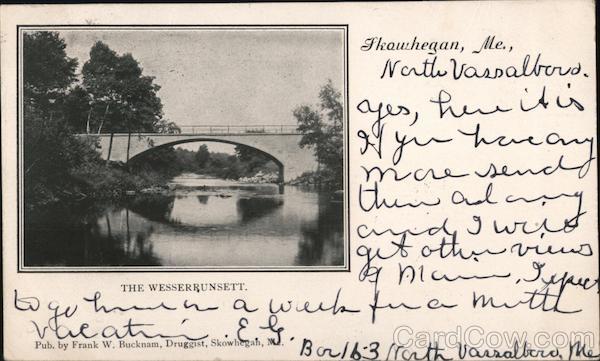 Skowhegan, Me.,
North Vassalboro.
yes, here it is
If you have any
more send
them along
and I will
get other views
of Maine. I expect
to go home in a week for a month
vacation. E. G.
Box 163 North Vassalboro, Me
THE WESSERRUNSETT.
Pub. by Frank W. Bucknam, Druggist, Skowhegan, Me.
CardCow.com